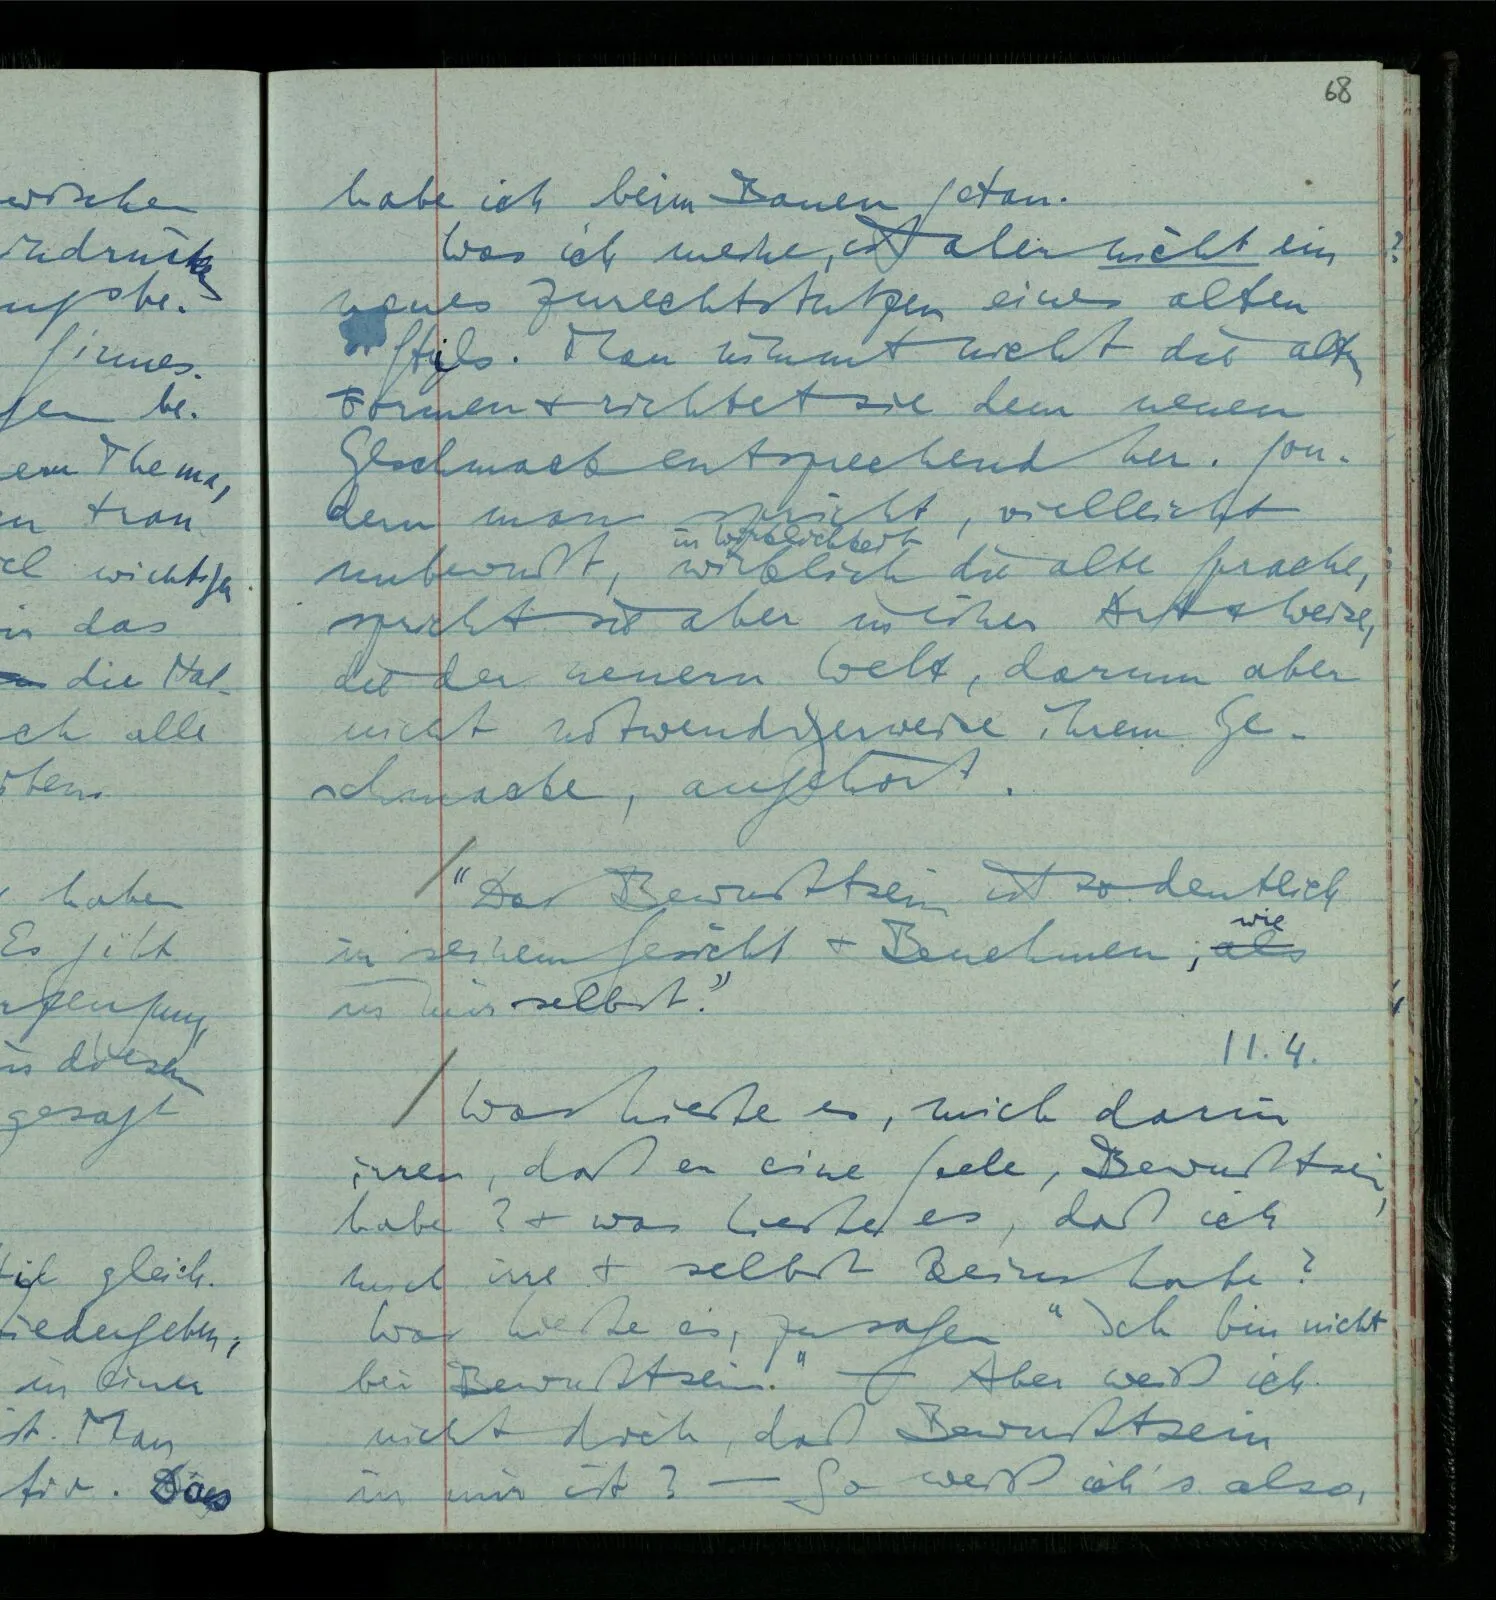 68
habe ich beim Bauen getan.
Was ich meine, ist aber nicht ein ?
neues Zurechtstutzen eines alten
Stils. Man nimmt nicht die alten
Formen + richtet sie dem neuen
Geschmack entsprechend her. Son-
dern man spricht, vielleicht
in Wirklichkeit
unbewußt, wirklich die alte Sprache,
spricht sie aber in einer Art + Weise,
die der neuern Welt, darum aber
nicht notwendigerweise ihrem Ge-
schmacke, angehört.
"Das Bewußtsein ist so deutlich
wie
in seinem Gesicht + Benehmen, als
in mir selbst."
11.4.
Was hieße es, mich darin
irren, daß er eine Seele, Bewußtsein,
habe? + was hieße es, daß ich
mich irre + selbst keines habe?
Was hieße es, zu sagen "Ich bin nicht
bei Bewußtsein." — Aber weiß ich
nicht doch, daß Bewußtsein
in mir ist? — So weiß ich's also,
wischen
be.
firmes.
gen be.
em Thema,
tran
wichtigen
in das
die Mal-
ch alle
haben
Es gibt
in diesem
gesagt
gleich.
wiedergeben,
in einer
ist. Man
für. Das